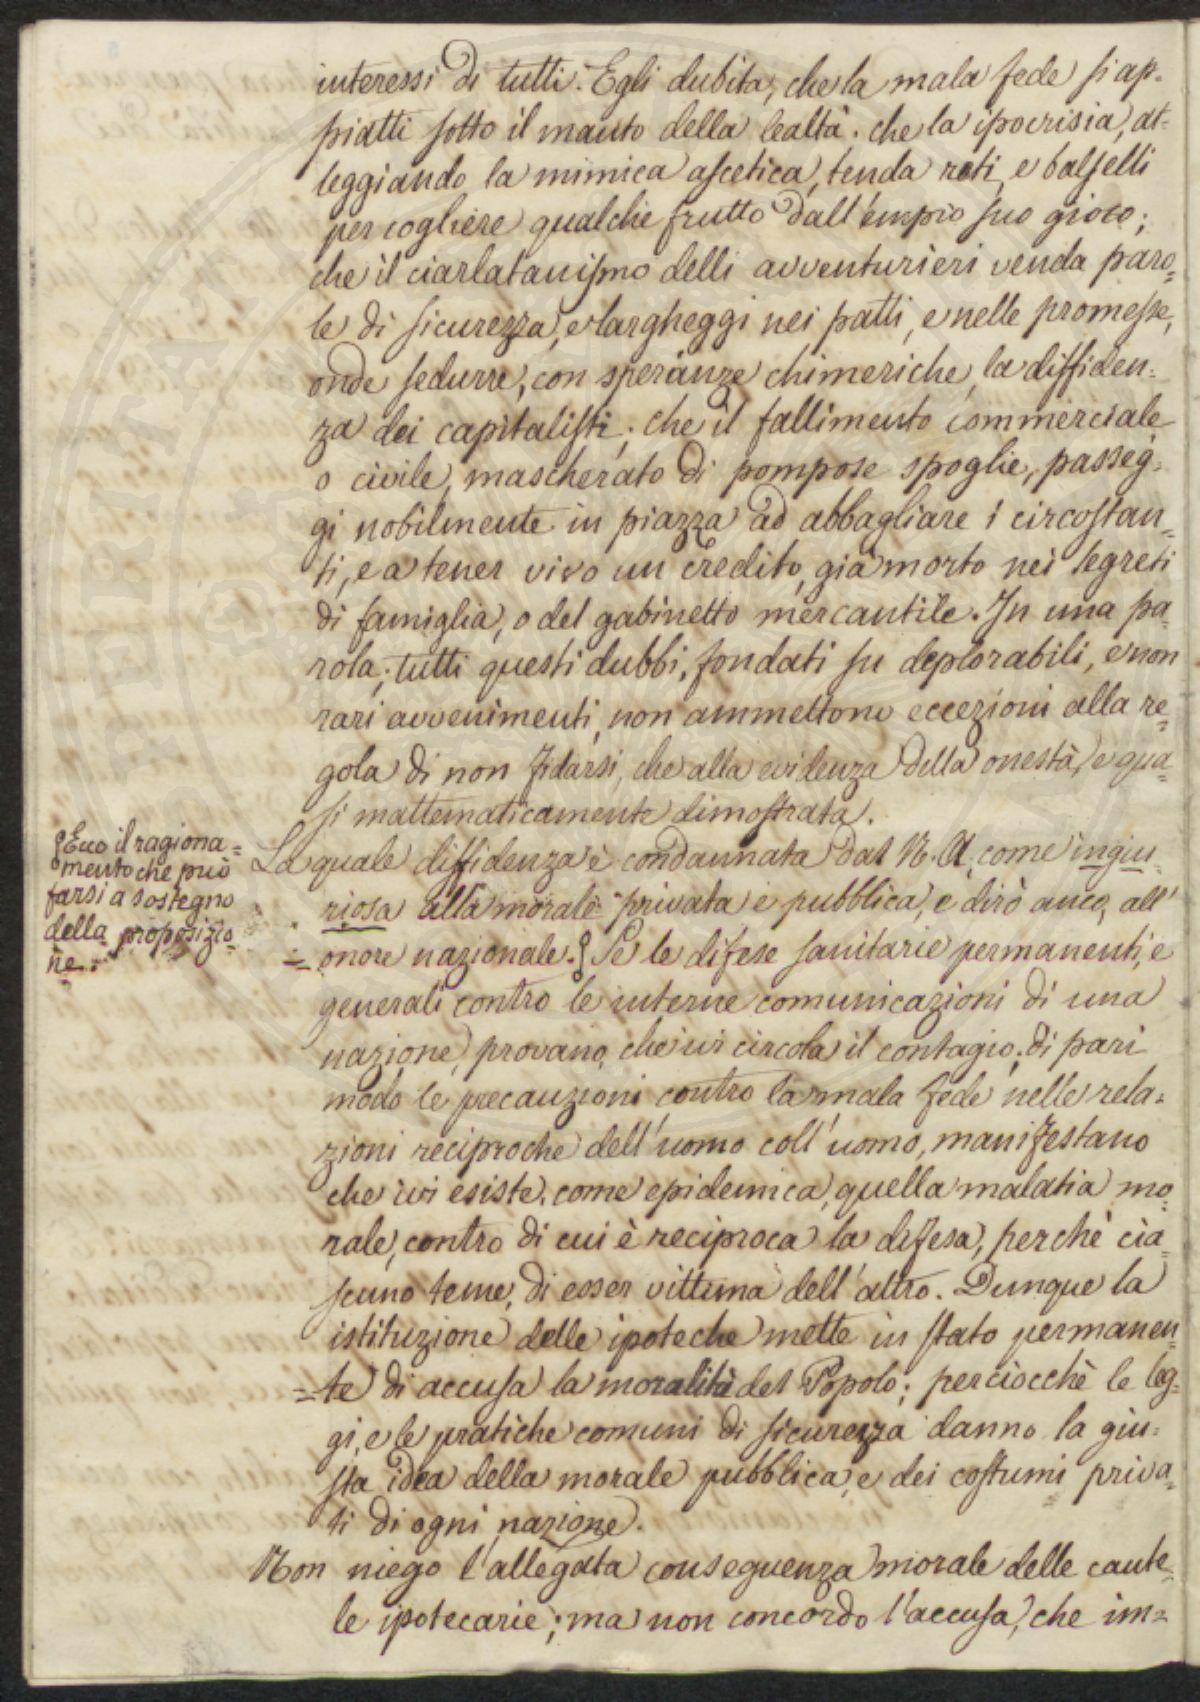 interessi di tutti. Egli dubita, che la mala fede si ap-
piatti sotto il manto della lealtà. che la ipocrisia, at-
teggiando la mimica ascetica, tenda reti, e balzelli
per cogliere qualche frutto dall'empio suo gioco;
che il ciarlatanismo delli avventurieri venda paro=
le di sicurezza, e largheggi nei patti, e nelle promesse,
onde sedurre, con speranze chimeriche, la diffiden=
za dei capitalisti; che il fallimento commerciale
o civile, mascherato di pompose spoglie, passeg=
gi nobilmente in piazza ad abbagliare i circostan=
ti, e a tener vivo un credito, già morto nei segreti
di famiglia, o del gabinetto mercantile. In una pa=
rola; tutti questi dubbi, fondati su deplorabili, e non
rari avvenimenti, non ammettono eccezioni alla re=
gola di non fidarsi, che alla evidenza della onestà, e qua=
si mattematicamente dimostrata.
La quale diffidenza è condannata dal N. A. come ingiu=
riosa alla morale privata e pubblica, e dirò anco, all'
= onore nazionale. § Se le difese sanitarie permanenti, e
generali contro le interne comunicazioni di una
nazione, provano, che ivi circola il contagio; di pari
modo le precauzioni contro la mala fede nelle rela=
zioni reciproche dell'uomo coll'uomo, manifestano
che ivi esiste, come epidemica, quella malatia mo=
rale, contro di cui è reciproca la difesa, perchè cia=
scuno teme, di esser vittima dell'altro. Dunque la
istituzione delle ipoteche mette in stato permanen=
= te di accusa la moralità del Popolo; perciocchè le leg=
gi, e le pratiche comuni di sicurezza danno la giu=
sta idea della morale pubblica, e dei costumi priva=
ti di ogni nazione.
Non niego l'allegata conseguenza morale delle caute=
le ipotecarie; ma non concordo l'accusa, che im=
§ Ecco il ragiona=
mento che può
farsi a sostegno
della proposizio=
ne.